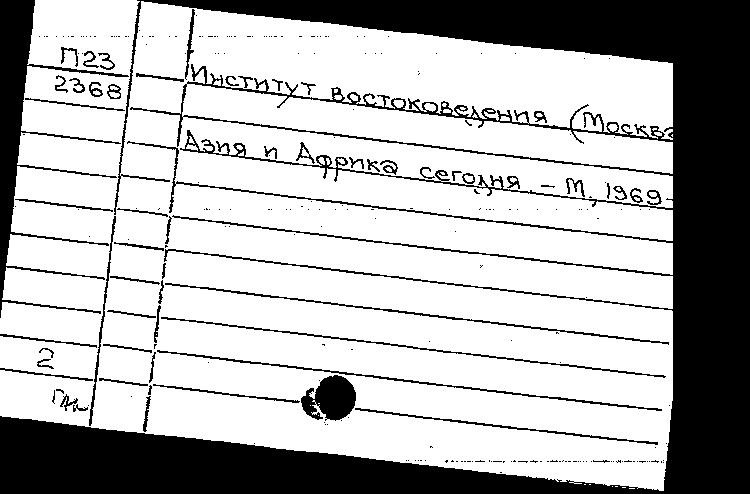 П23
2368
Институт востоковедения (Москва
Азия и Африка сегодня – М, 1969-
2